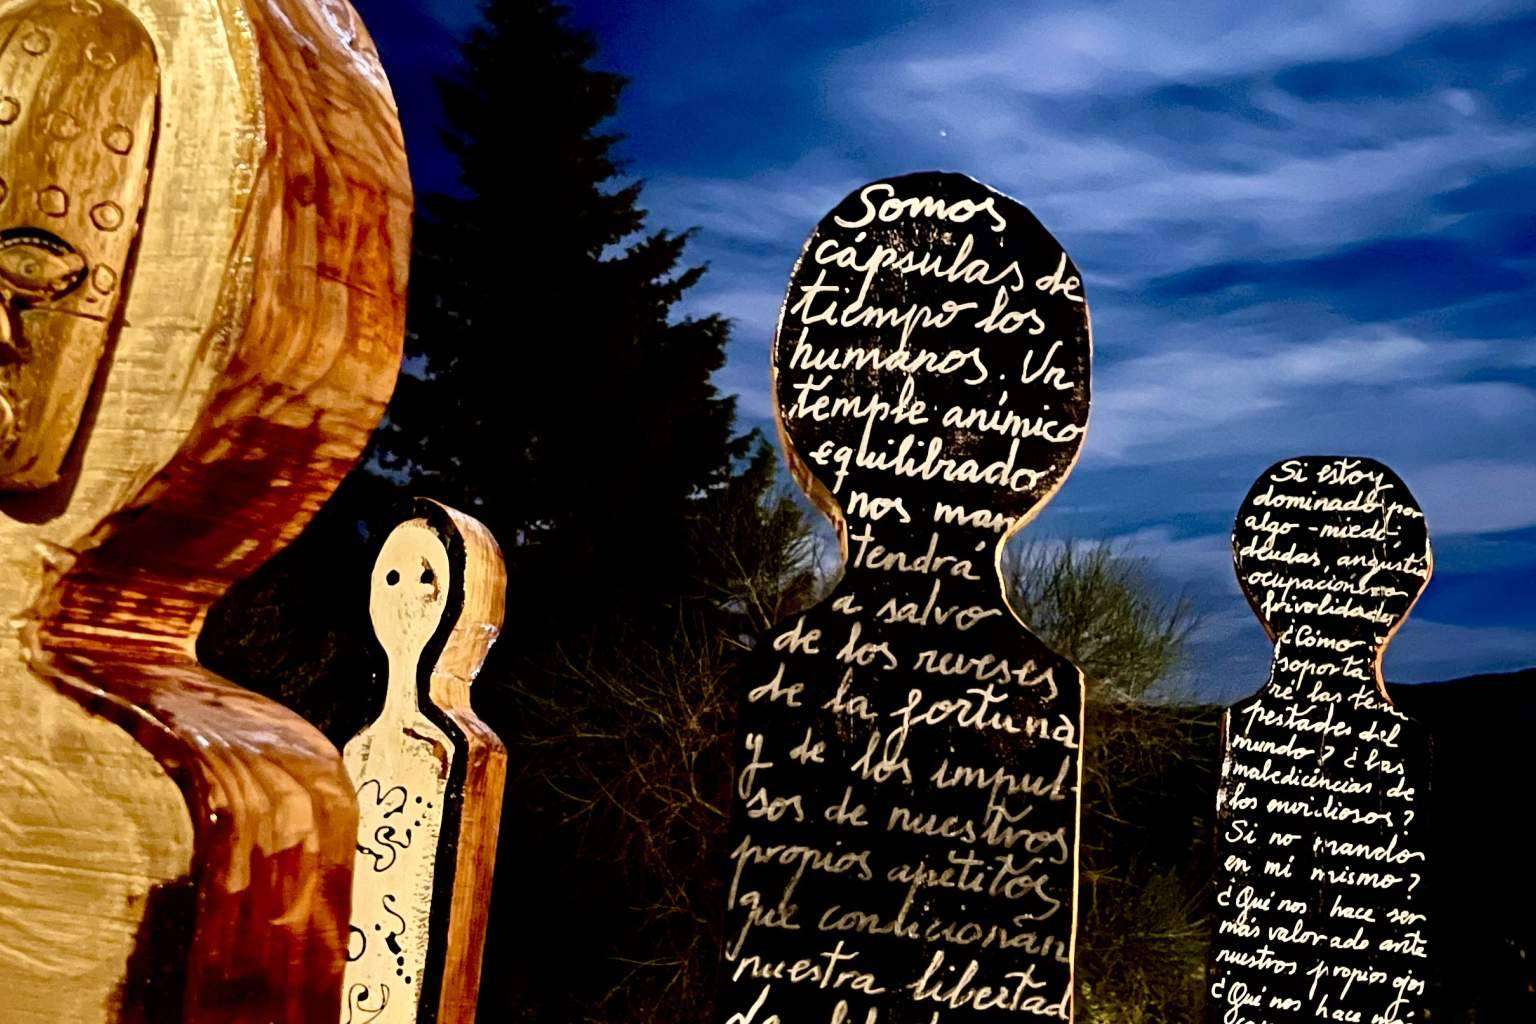 Somos
cápsulas de
tiempo los
humanos. Un
temple anímico
equilibrado
nos man
tendrá
a salvo
de los reveses
de la fortuna
y de los impul-
sos de nuestros
propios apetitos
que condicionan
nuestra libertad
de
Si estoy
dominado por
algo - miedo
deudas, angustia
ocupaciones o
frivolidades
¿Cómo
soporta
ré las tem
pestades del
mundo? ¿Las
maledicencias de
los envidiosos?
Si no mando
en mí mismo?
¿Qué nos hace ser
más valorado ante
nuestros propios ojos
¿Qué nos hace más